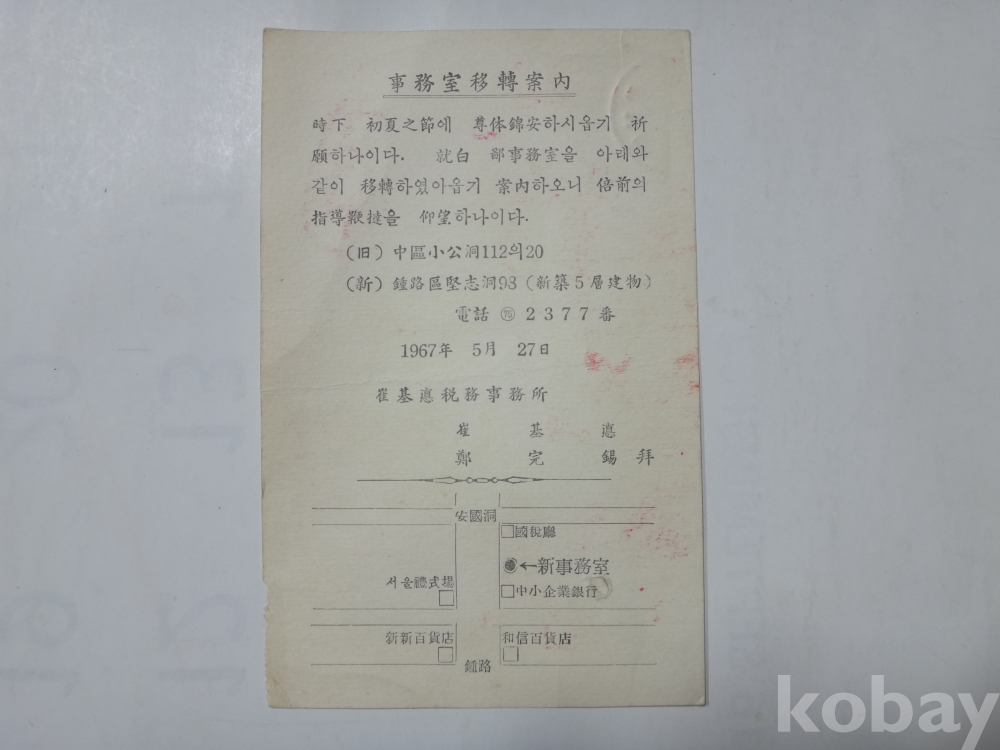 事務室移轉案內
時下 初夏之節에 尊体錦安하시옵기 祈
願하나이다. 就白 鄙事務室을 아래와
같이 移轉하였아옵기 案內하오니 倍前의
指導鞭撻을 仰望하나이다.
(旧) 中區小公洞112의20
(新) 鍾路區堅志洞98 (新築5層建物)
電話 ㊆ 2377番
1967年 5月 27日
崔基悳税務事務所
崔基悳
鄭完錫 拜
安國洞
國稅廳
←新事務室
서울禮式場
中小企業銀行
新新百貨店 和信百貨店
鍾路
kobay